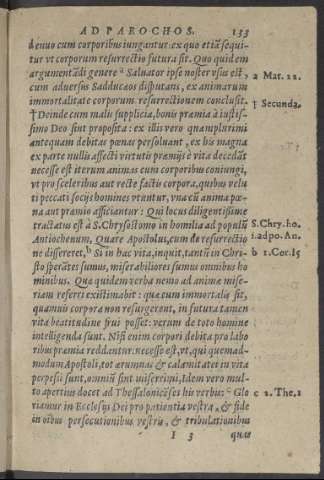 AD PAROCHOS. 133
denuo cum corporibus iungantur: ex quo etiã sequi-
tur vt corporum resurrectio futura sit. Quo quidem
argumentãdi genere a Saluator ipse noster vsus est,
a Mat. 22.
cum aduersus Sadducæos disputans, ex animarum
immortalitate corporum resurrectionem conclusit.
† Deinde cum malis supplicia, bonis præmia à iustis-
† Secunda.
simo Deo sint proposita: ex illis vero quamplurimi
antequam debitas pœnas persoluant, ex his magna
ex parte nullis affecti virtutis præmijs è vita decedãt
necesse est iterum animas cum corporibus coniungi,
vt pro sceleribus aut recte factis corpora, quibus velu
ti peccati socijs homines vtuntur, vna cũ anima pœ-
na aut præmio afficiantur: Qui locus diligentissime
tractatus est à S. Chrysostomo in homilia ad populũ
S. Chry. ho.
Antiochenum, Quare Apostolus, cum de resurrectio
1. ad po. An.
ne dissereret, b Si in hac vita, inquit, tantũ in Chri-
b 1. Cor. 15
sto sperãtes sumus, miserabiliores sumus omnibus ho
minibus. Quæ quidem verba nemo ad animæ mise-
riam referri existimabit: quæ cum immortalis sit,
quamuis corpora non resurgerent, in futura tamen
vita beatitudine frui posset: verum de toto homine
intelligenda sunt. Nisi enim corpori debita pro labo
ribus præmia reddantur: necesse est, vt, qui quemad-
modum Apostoli, tot ærumnas & calamitates in vita
perpessi sunt, omniũ sint miserrimi, Idem vero mul-
to apertius docet ad Thessalonicẽses his verbis: c Glo
c 2. The. 1
riamur in Ecclesijs Dei pro patientia vestra, & fide
in oĩbus persecutionibus vestris, & tribulationibus
I 3 quas